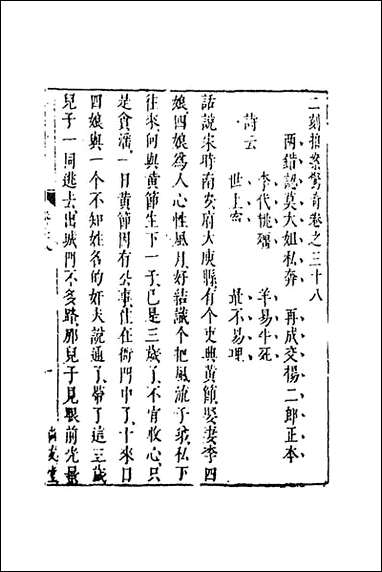 二刻拍案驚奇卷之三十八
兩錯認莫大姐私奔 再成交楊二郎正本
李代桃殭 羊易牛死
詩云
世上寃 最不易理
話說宋時南安府大庾縣有个吏典黃節娶妻李四
娘四娘爲人心性風月好結識个把風流子弟私下
往來向與黃節生下一子已是三歲了不肯收心只
是貪淫一日黃節因有公事住在衙門中了十來日
四娘與一个不知姓名的奸夫說通了帶了這三歲
兒子一同逃去出城門不多路那兒子見眼前光景
尚友堂